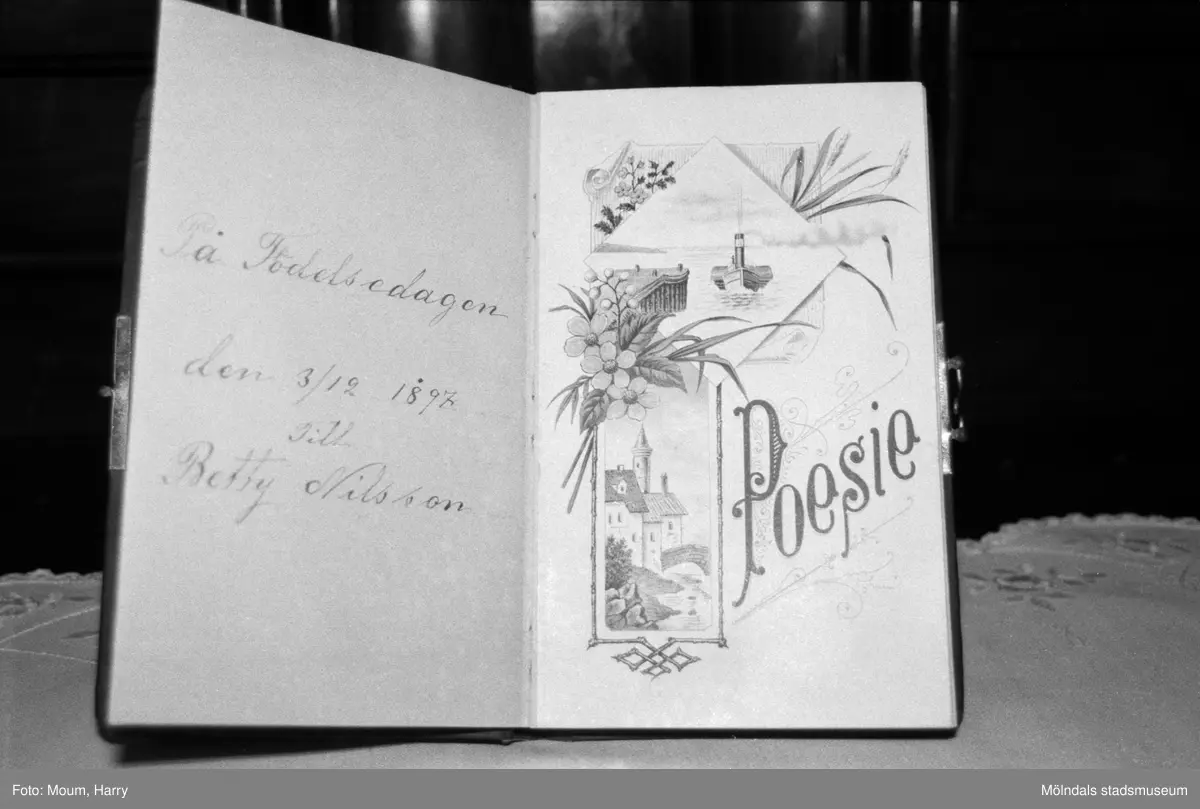 På Födelsedagen
den 3/12 1897
Till
Betty Nilsson
Poesie
Foto: Moum, Harry
Mölndals stadsmuseum